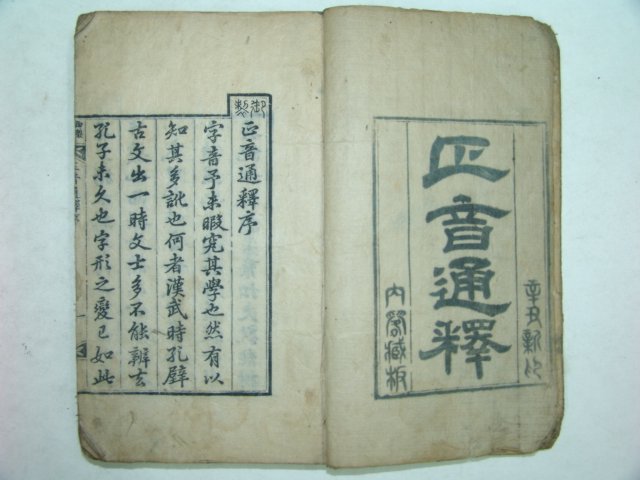 辛丑新印
正音通釋
內閣藏板
御製
正音通釋序
字音予未暇究其學也然有以
知其多訛也何者漢武時孔壁
古文出一時文士多不能辨去
孔子未久也字形之變已如此